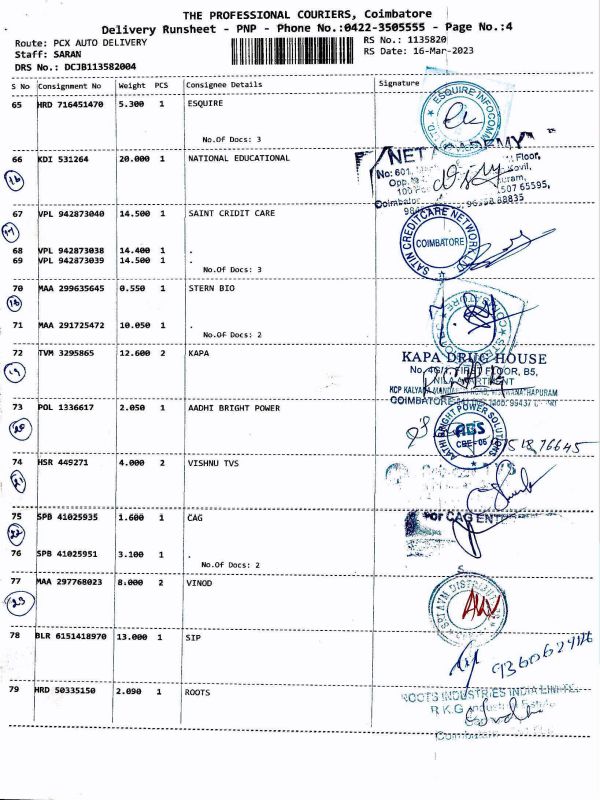 THE PROFESSIONAL COURIERS, Coimbatore
Delivery Runsheet - PNP - Phone No.:0422-3505555 - Page No.:4
Route: PCX AUTO DELIVERY
RS No.: 1135820
Staff: SARAN
RS Date: 16-Mar-2023
DRS No.: DCJB113582004
S No Consignment No Weight PCS Consignee Details Signature
65 HRD 716451470 5.300 1 ESQUIRE
ESQUIRE INFOCOM
No.Of Docs: 3
66 KDI 531264 20.000 1 NATIONAL EDUCATIONAL
NET ACADEMY
No: 601, Floor,
Coimbatore
67 VPL 942873040 14.500 1 SAINT CRIDIT CARE
SATIN CREDITCARE NETWORK LTD
COIMBATORE
68 VPL 942873038 14.400 1 .
69 VPL 942873039 14.500 1 .
No.Of Docs: 3
70 MAA 299635645 0.550 1 STERN BIO
71 MAA 291725472 10.050 1 .
No.Of Docs: 2
72 TVM 3295865 12.600 2 KAPA
KAPA DRUG HOUSE
FIRST FLOOR, B5,
19
73 POL 1336617 2.050 1 AADHI BRIGHT POWER
AATHI BRIGHT POWER SOLUTIONS
ABS
CBE-06
20
74 HSR 449271 4.000 2 VISHNU TVS
21
75 SPB 41025935 1.600 1 CAG
For CAG ENTE
22
76 SPB 41025951 3.100 1 .
No.Of Docs: 2
77 MAA 297768023 8.000 2 VINOD
23
78 BLR 6151418970 13.000 1 SIP
79 HRD 50335150 2.090 1 ROOTS
ROOTS INDUSTRIES INDIA LIMITED
R.K.G Industrial Estate